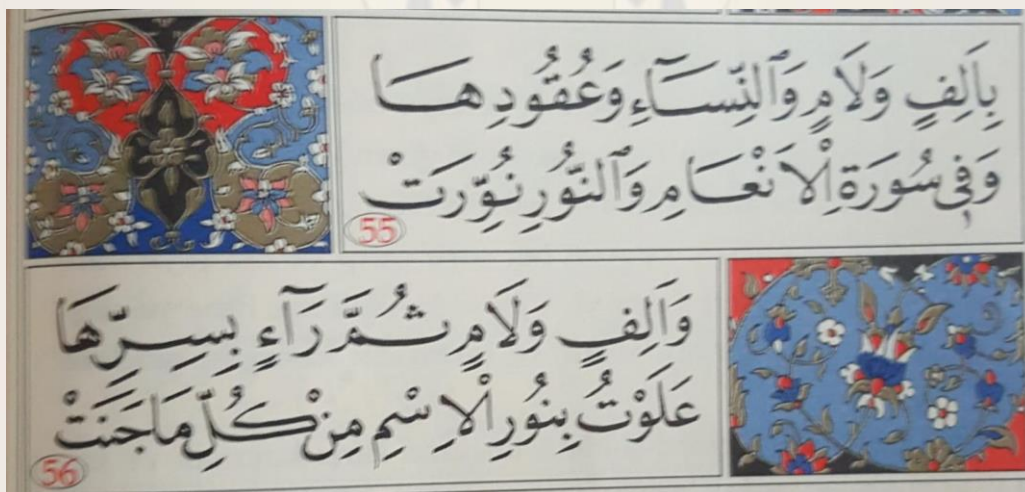 بِاَلِفٍ وَلَامٍ وَالنِّسَآءِ وَعُقُودِهَا
وَفِى سُورَةِ اْلاَنْعَامِ وَالنُّورِ نُوِّرَتْ
55
وَاَلِفٍ وَلَامٍ ثُمَّ رَآءٍ بِسِرِّهَا
عَلَوْتُ بِنُورِ اْلاِسْمِ مِنْ كُلِّ مَاجَنَتْ
56